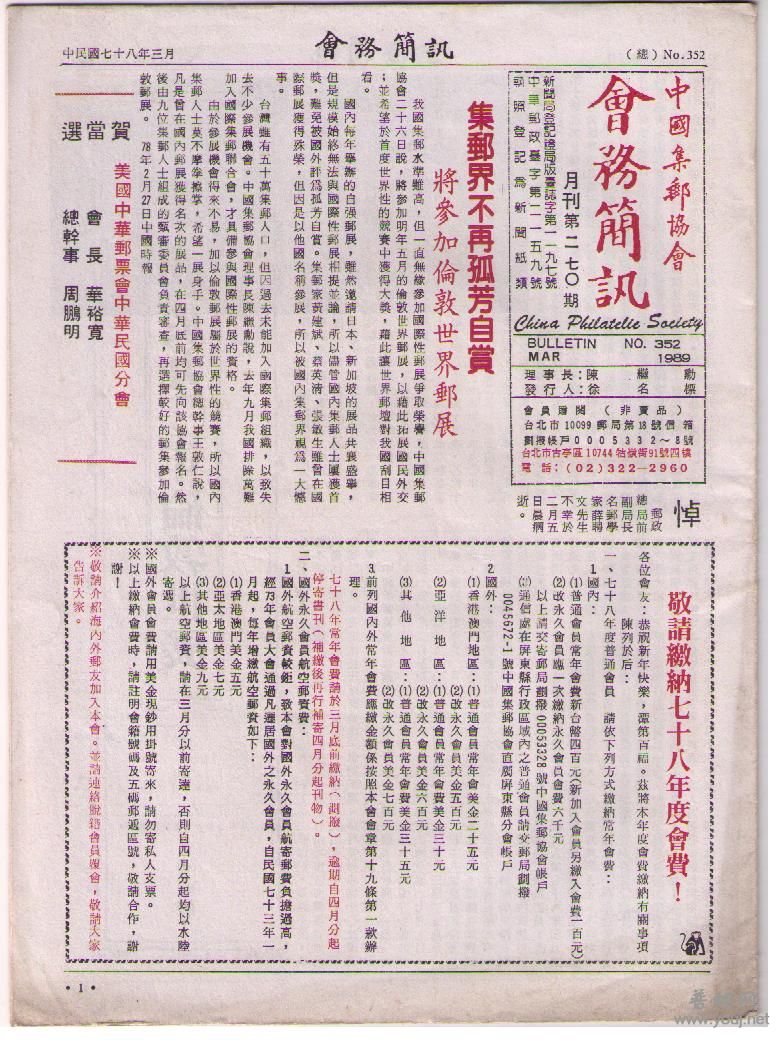 中民國七十八年三月
會務簡訊
（總）No. 352
中國集郵協會
會務簡訊
月刊第二七〇期
新聞局登記證局版臺誌字第一一九七號
中華郵政臺字第一二一五九號
執照登記為新聞紙類
China Philatelic Society
BULLETIN NO. 352
MAR 1989
理事長：陳繼勳
發行人：徐名標
會員贈閱（非賣品）
台北市10099郵局第18號信箱
劃撥帳戶0005332～8號
台北市古亭區10744牯嶺街91號四樓
電話：（02）322—2960
悼
郵政
總局前
副局長
名郵學
家薛聘
文先生
不幸於
二月五
日晨病
逝。
集郵界不再孤芳自賞
將參加倫敦世界郵展
我國集郵水準雖高，但一直無緣參加國際性郵展爭取榮譽，中國集郵
協會二十六日說，將參加明年五月的倫敦世界郵展，以藉此拓展國民外交
；並希望於首度世界性的競賽中獲得大獎，藉此讓世界郵壇對我國刮目相
看。
國內每年舉辦的自強郵展，雖然邀請日本、新加坡的展品共襄盛舉，
但是規模始終無法與國際性郵展相提並論，所以儘管國內集郵人士屢獲首
獎，難免被國外評為孤芳自賞。集郵家黃建斌、蔡英清、張敏生雖曾在國
際郵展獲得殊榮，但因是以他國名稱參展，所以被國內集郵界視為一大憾
事。
台灣雖有五十萬集郵人口，但因過去未能加入國際集郵組織，以致失
去不少參展機會。中國集郵協會理事長陳繼勳說，去年九月我國排除萬難
加入國際集郵聯合會，才具備參與國際性郵展的資格。
由於參展機會得來不易，加以倫敦郵展屬於世界性的競賽，所以國內
集郵人士莫不摩拳擦掌，希望一展身手。中國集郵協會總幹事王敦仁說，
凡是曾在國內郵展獲得名次的展品，在四月底前均可先向該協會報名。然
後由九位集郵人士組成的甄審委員會負責審查，再選擇較好的郵集參加倫
敦郵展。 78年2月27日中國時報
賀 美國中華郵票會中華民國分會
當 會長 華裕寬
選 總幹事 周鵬明
敬請繳納七十八年度會費！
各位會友：恭祝新年快樂，潭第百福。茲將本年度會費繳納有關事項
陳列於后：
一、七十八年度普通會員 請依下列方式繳納常年會費：
1.國內：
(1)普通會員常年會費新台幣四百元（新加入會員另繳入會費一百元）
(2)改永久會員應一次繳納永久會員會費六千元
以上請交郵局劃撥00053328號中國集郵協會帳戶
(3)通信處在屏東縣行政區域內之普通會員請交郵局劃撥
0045672-1號中國集郵協會直屬屏東縣分會帳戶
2.國外：
(1)香港澳門地區：(1)普通會員常年會費美金二十五元
(2)改永久會員美金五百元
(2)亞洋地區：(1)普通會員常年會費美金三十元
(2)改永久會員美金六百元
(3)其他地區：(1)普通會員常年會費美金三十五元
(2)改永久會員美金七百元
3.前列國內外常年會費應繳金額係按照本會會章第十九條第一款辦
理。
七十八年常年會費請於三月底前繳納（劃撥），逾期自四月分起
停寄書刊（補繳後再行補寄四月分起刊物）。
二、國外永久會員航空郵資費：
1.國外航空郵資較鉅，致本會對國外永久會員航寄郵費負擔過高，
經73年會員大會通過凡遷居國外之永久會員，自民國七十三年一
月起，每年增繳航空郵資如下：
(1)香港澳門美金五元
(2)亞太地區美金七元
(3)其他地區美金九元
以上航空郵費，請在三月分以前寄達，否則自四月分起均以水陸
寄遞。
※國外會員會費請用美金現鈔用掛號寄來，請勿寄私人支票。
※以上繳納會費時，請註明會籍號碼及五碼郵遞區號，敬請合作，謝
謝！
※敬請介紹海內外郵友加入本會。並請連絡脫籍會員復會，敬請大家
告訴大家。
•1•
www.youj.net